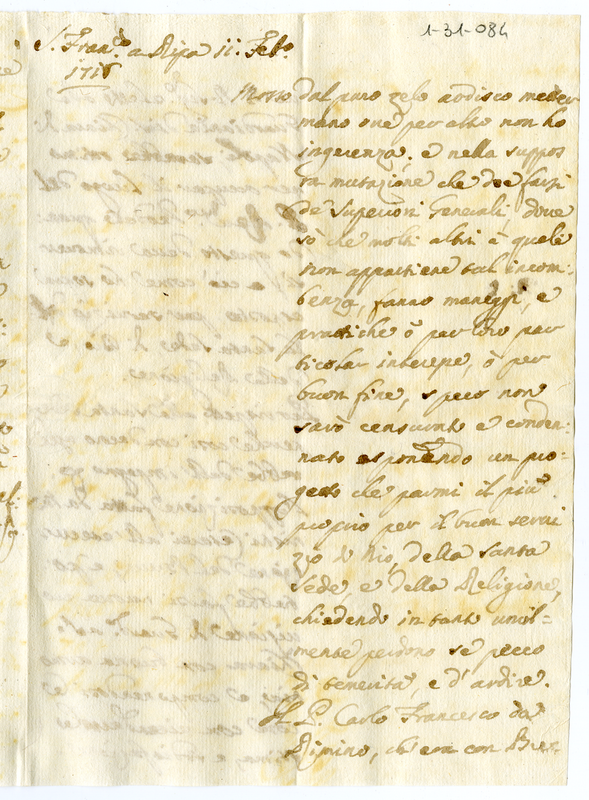 1-31-084
S. Fran.co a Ripa 11. Feb.o
1716
Mosso dal puro zelo ardisco metter
mano ove per altro non ho
ingerenza. e nella suppos
ta mutazione che dee farsi
de' Superiori Generali, dove
sò che molti altri à quali
non appartiene tal incom:
benza, fanno maneggi, e
pratiche ò per loro par
ticolar interesse, ò per
buon fine, spero non
sarò censurato e conden:
nato esponendo un pro-
getto che parmi il più
proprio per il buon servi
zio di Dio, della Santa
Sede, e della Religione,
chiedendo in tanto umil-
mente perdono se pecco
di temerità, e d'ardire.
Il P. Carlo Francesco da
Rimino, ch'era con